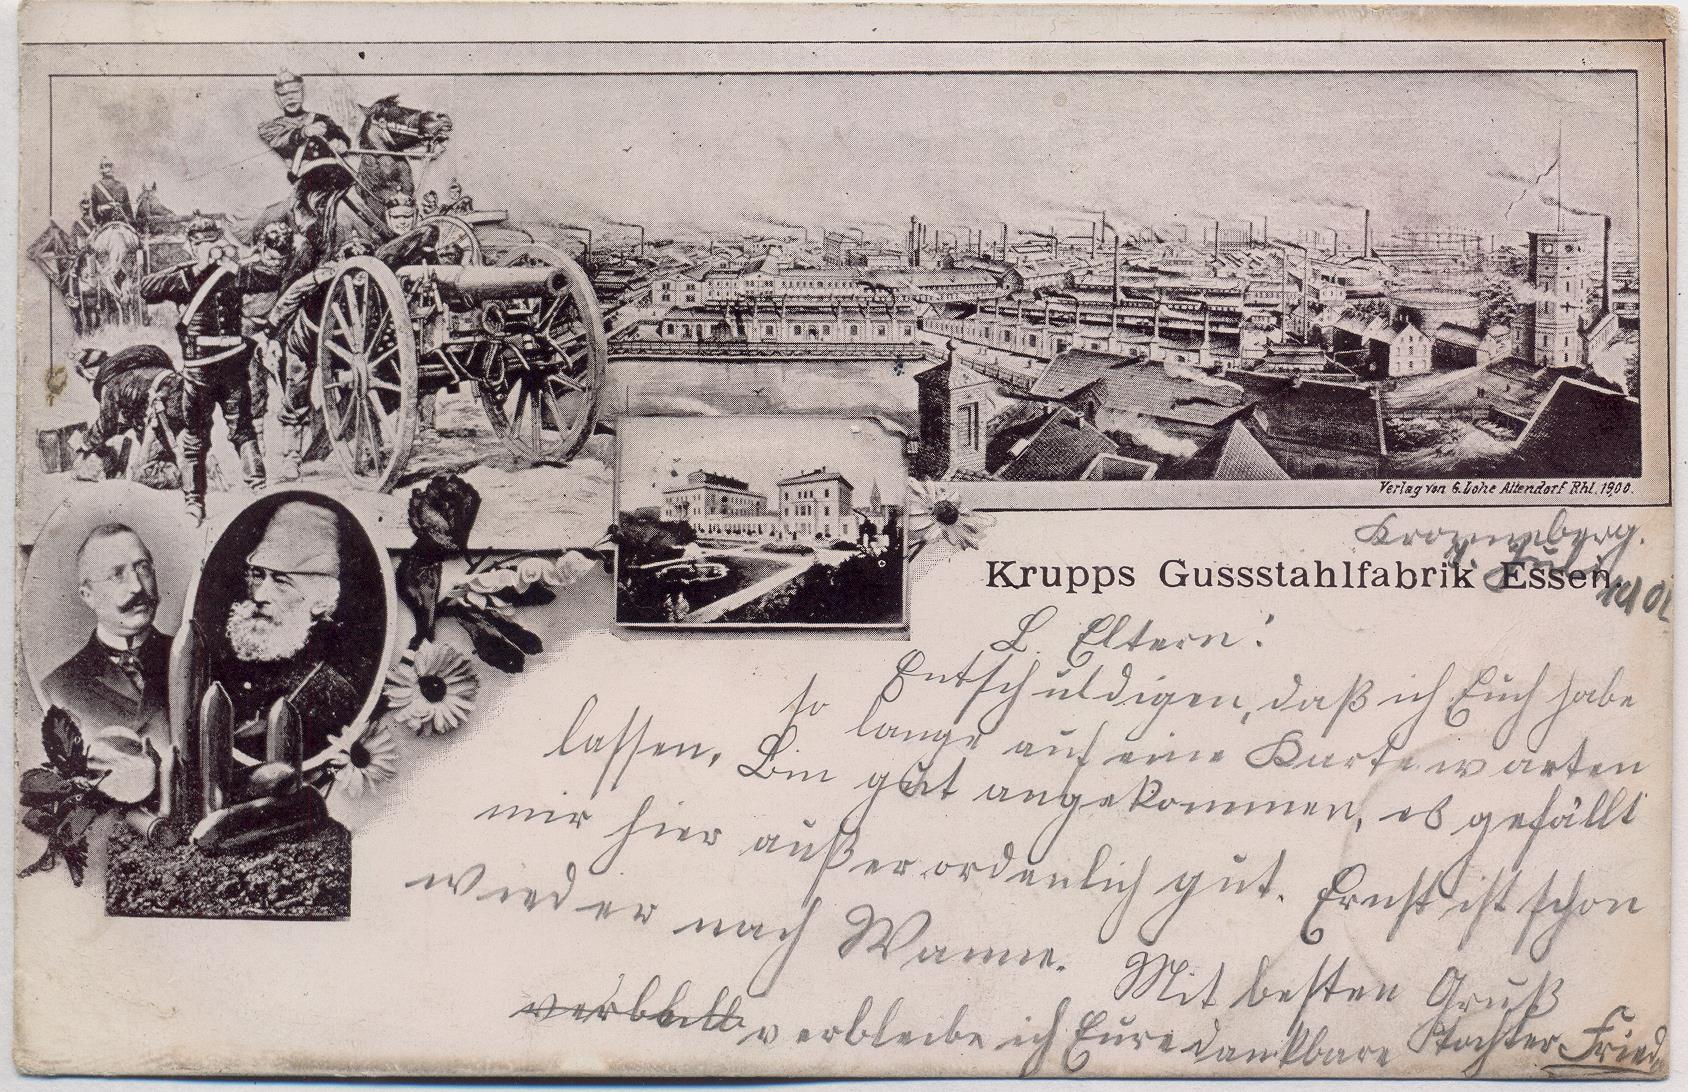 Verlag von G. Lohe Altendorf Rhl. 1900.
Kronenberg.
Krupps Gussstahlfabrik Essen
L. Eltern!
Entschuldigen, daß ich Euch habe
so lange auf eine Karte warten
lassen. Bin gut angekommen, es gefällt
mir hier außerordenlich gut. Ernst ist schon
wieder nach Wanne. Mit besten Gruß
verbleibe ich Eure dankbare Tochter Fried